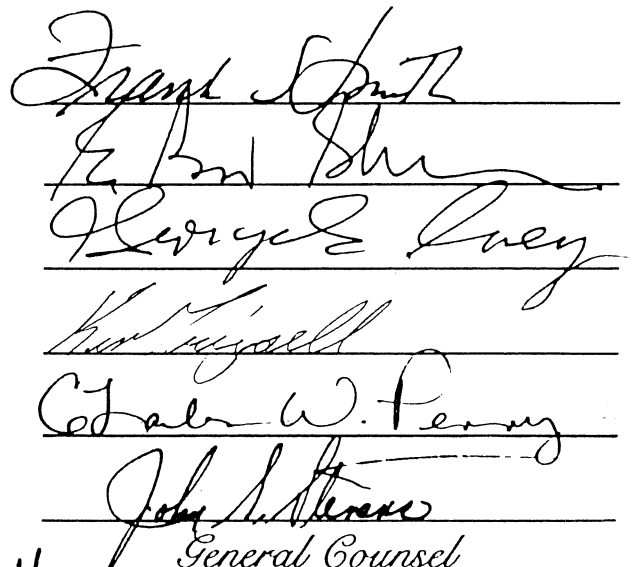 Frank Smith
George Ivey
Ken Frizzell
Charles W. Perry
John S. Stevens
General Counsel